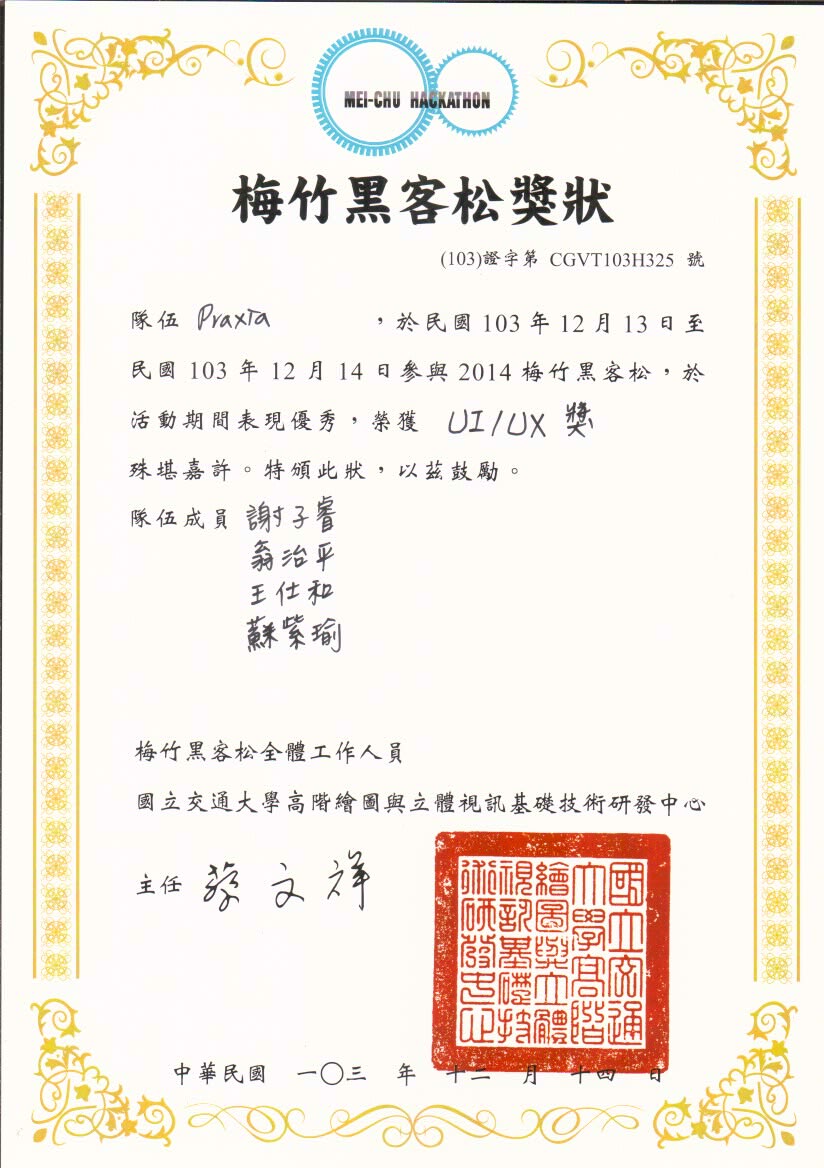 MEI-CHU HACKATHON
梅竹黑客松獎狀
(103)證字第 CGVT103H325 號
隊伍 Praxta ，於民國 103 年 12 月 13 日至
民國 103 年 12 月 14 日參與 2014 梅竹黑客松，於
活動期間表現優秀，榮獲 UI/UX 獎
殊堪嘉許。特頒此狀，以茲鼓勵。
隊伍成員 謝子睿
翁治平
王仕和
蘇紫瑜
梅竹黑客松全體工作人員
國立交通大學高階繪圖與立體視訊基礎技術研發中心
主任 蔡文祥
國立交通
大學高階
繪圖與立體
視訊基礎技
術研發中心
中華民國 一〇三 年 十二 月 十四 日